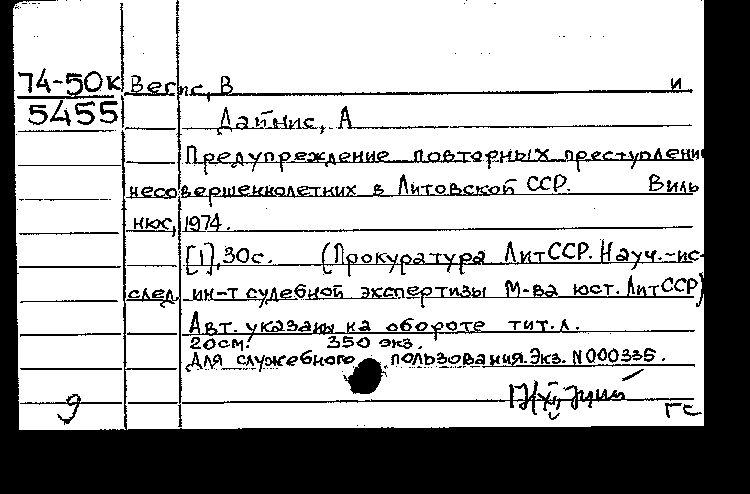 74-50к Вегис, В и
5455 Дайнис, А
Предупреждение повторных преступлени
несовершеннолетних в Литовской ССР. Виль
нюс, 1974.
[1], 30с. (Прокуратура ЛитССР. Науч.-ис-
след. ин-т судебной экспертизы М-ва юст. ЛитССР)
Авт. указаны на обороте тит.л.
20см. 350 экз.
Для служебного пользования. Экз. N000335.
9 ГС